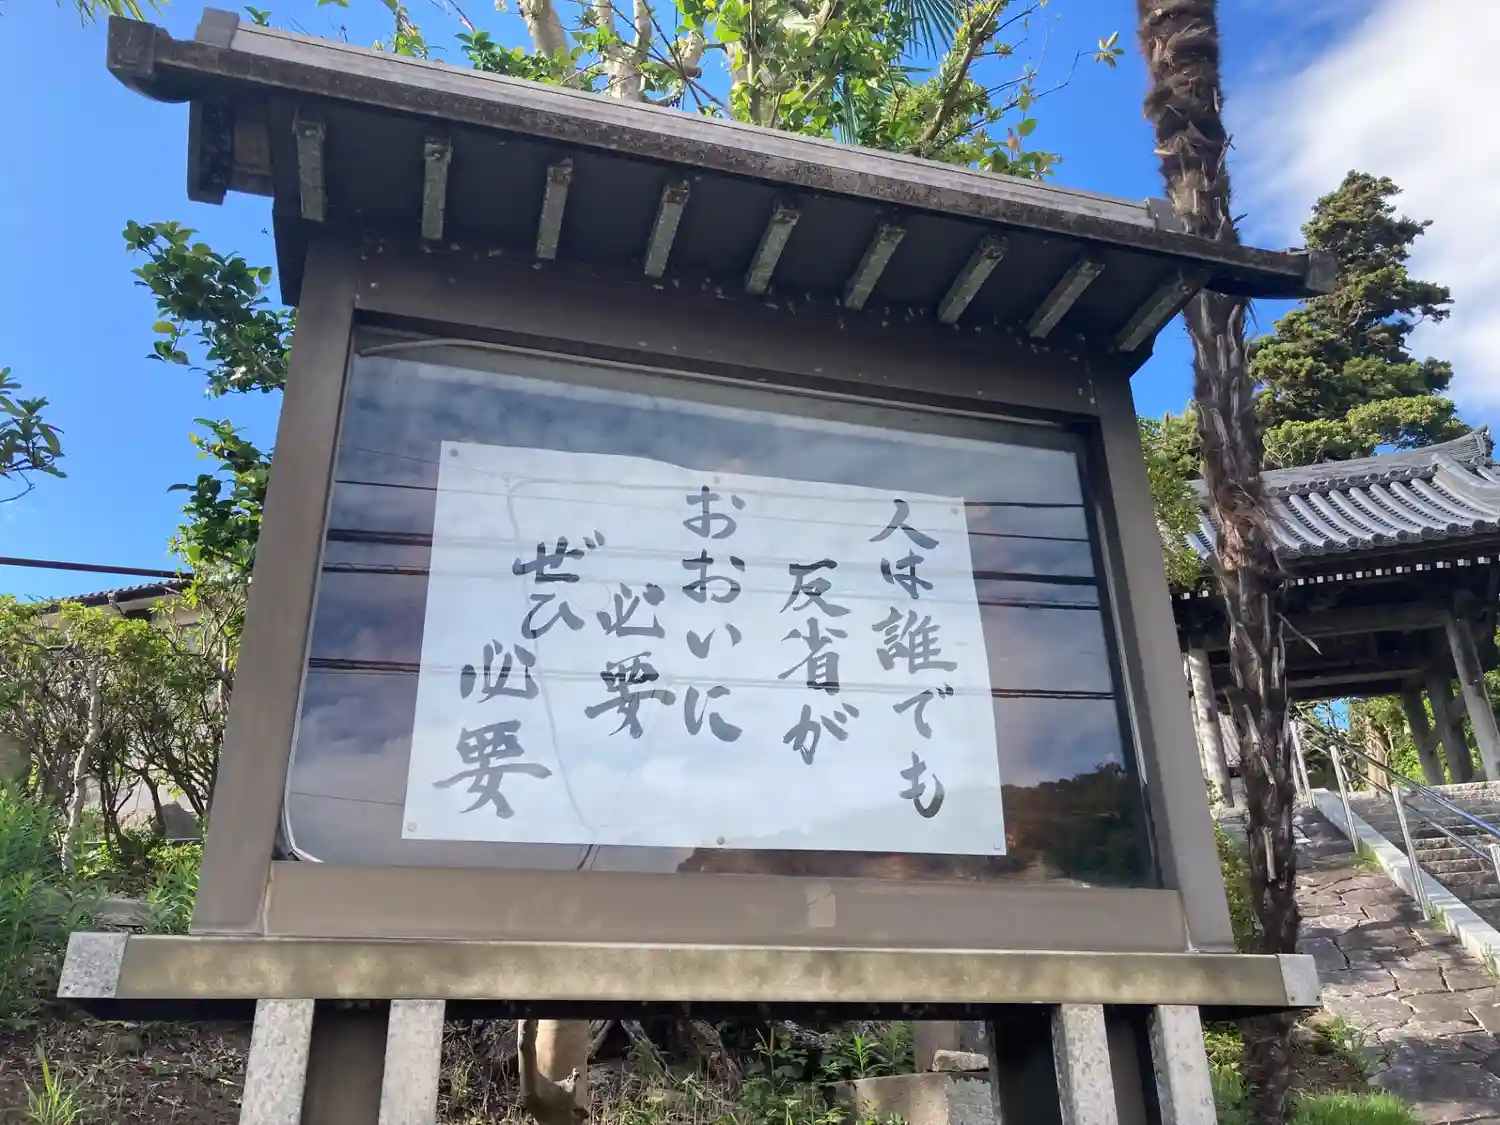 人は誰でも
反省が
おおいに
必要
ぜひ
必要